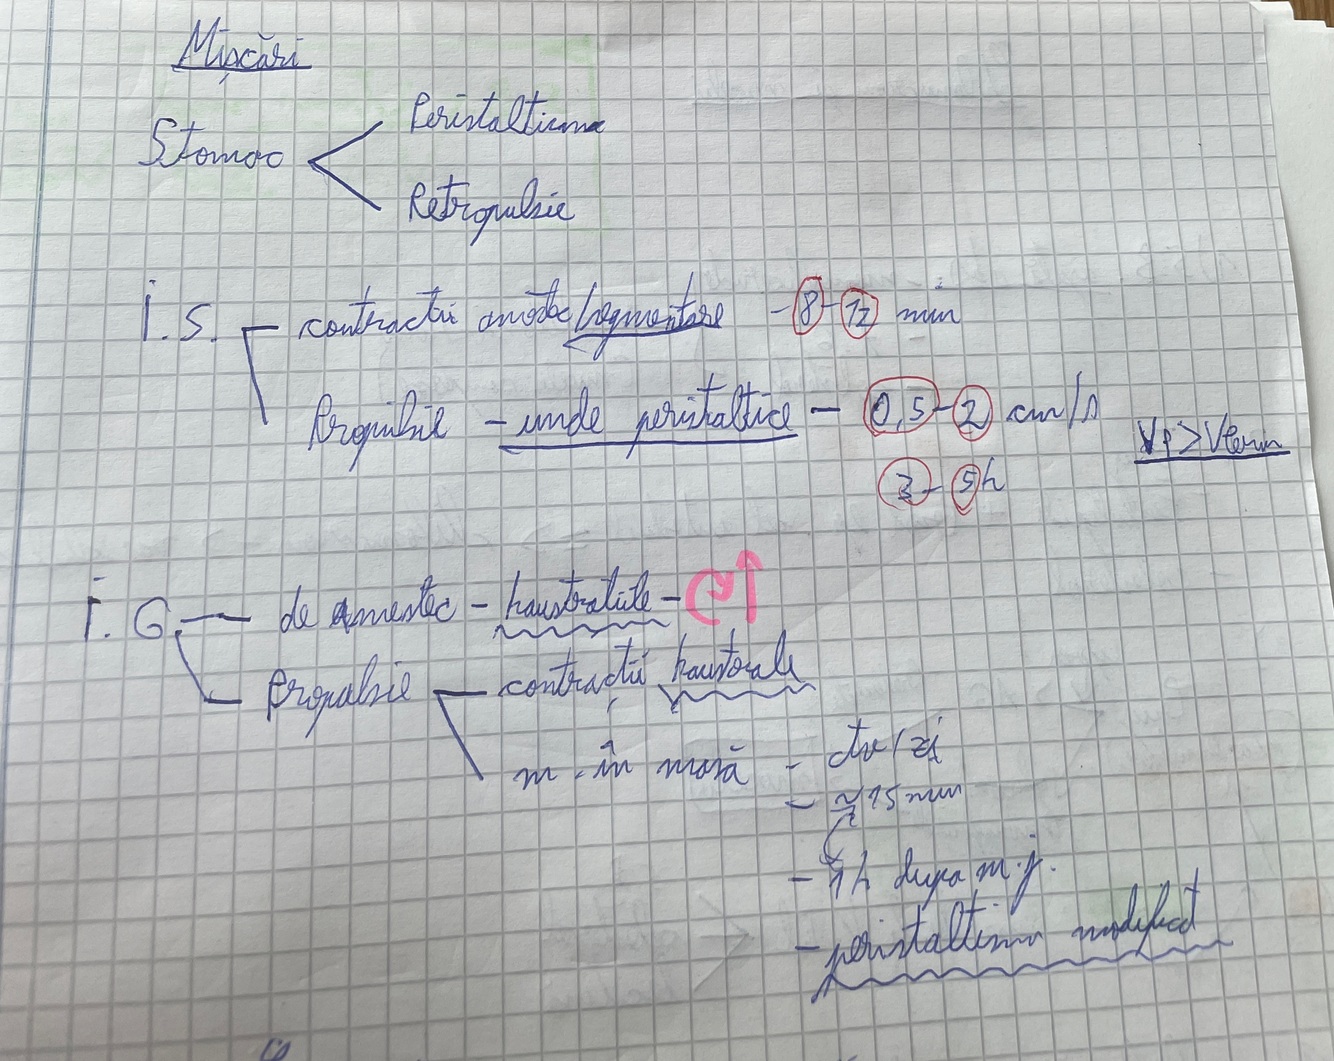 Mișcări
Stomac
Peristaltism
Retropulsie
I.S. contractii amestec/segmentare - 8-12 min
Propulsie - unde peristaltice - 0,5-2 cm/s
Vp > Vterm
3-5h
I.G de amestec - haustratiile -
Propulsie contracții haustrale
m. în masă - ctv/zi
- ≈ 15 min
- 1h dupa m.j.
- peristaltism modificat